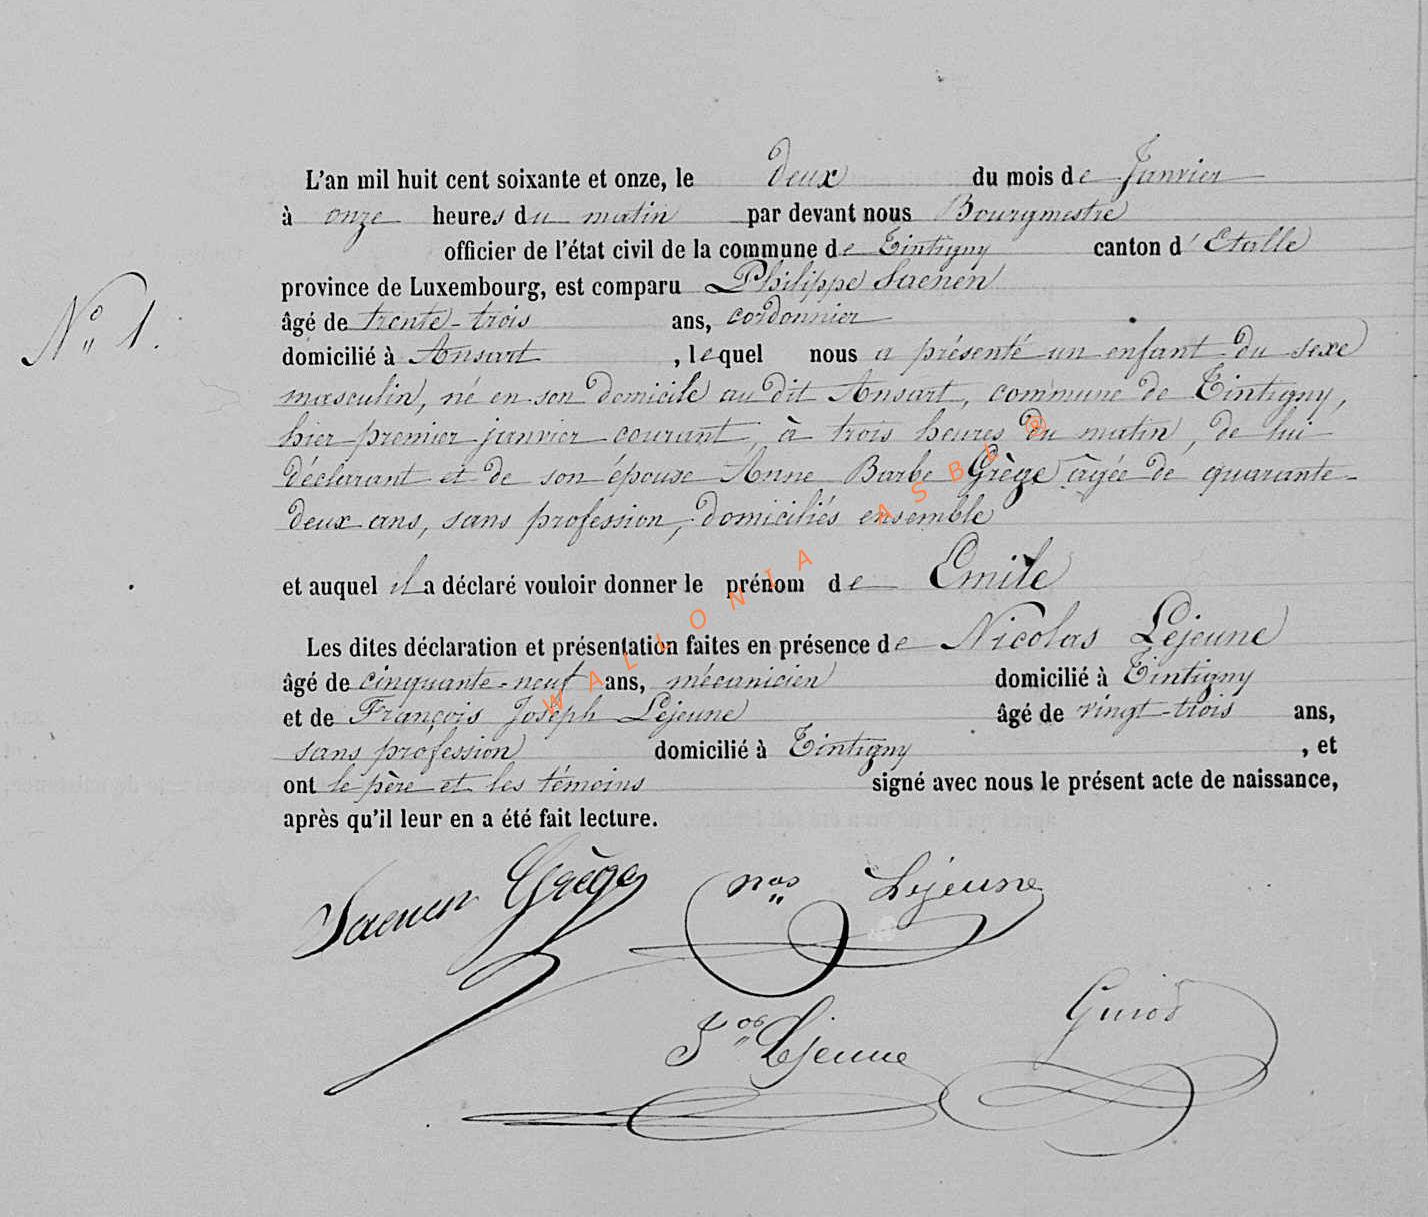 L'an mil huit cent soixante et onze, le deux du mois de Janvier
à onze heures du matin par devant nous Bourgmestre
officier de l'état civil de la commune de Tintigny canton d'Etalle
province de Luxembourg, est comparu Philippe Saenen
N° 1.
âgé de trente-trois ans, cordonnier
domicilié à Ansart, lequel nous a présenté un enfant du sexe
masculin, né en son domicile au dit Ansart, commune de Tintigny,
hier premier janvier courant, à trois heures du matin, de lui
déclarant et de son épouse Anne Barbe Grège âgée de quarante-
deux ans, sans profession, domiciliés ensemble
et auquel il a déclaré vouloir donner le prénom de Emile
Les dites déclaration et présentation faites en présence de Nicolas Lejeune
âgé de cinquante-neuf ans, mécanicien domicilié à Tintigny
et de François Joseph Lejeune âgé de vingt-trois ans,
sans profession domicilié à Tintigny, et
ont le père et les témoins signé avec nous le présent acte de naissance,
après qu'il leur en a été fait lecture.
WALLONIA ASBL ®
Saenen Grège Nas Lejeune
Jos Lejeune